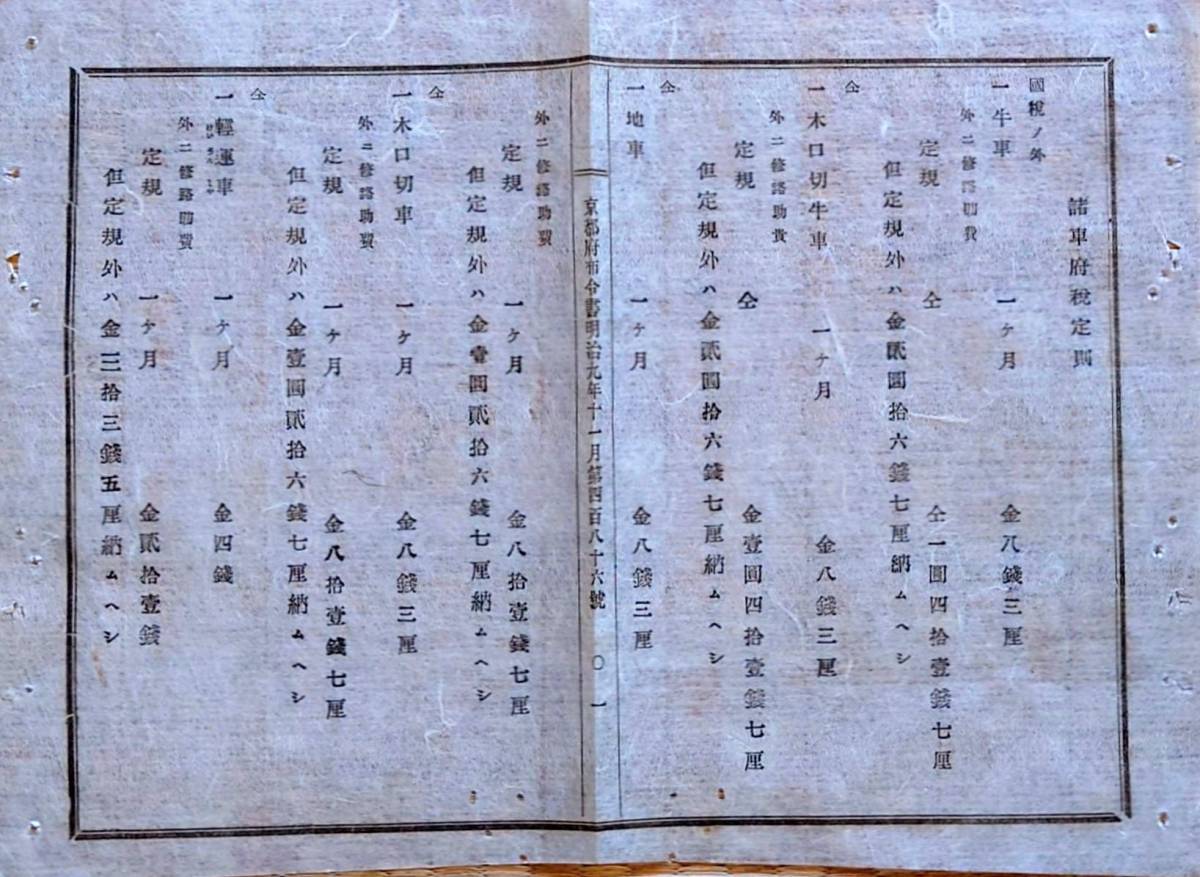 諸車府税定則
國税ノ外
一牛車 一ケ月 金八錢三厘
外ニ修路助費
定規 仝 仝一圓四拾壹錢七厘
但定規外ハ金貳圓拾六錢七厘納ムヘシ
仝
一木口切牛車 一ケ月 金八錢三厘
外ニ修路助費
定規 仝 金壹圓四拾壹錢七厘
但定規外ハ金貳圓拾六錢七厘納ムヘシ
仝
一地車 一ケ月 金八錢三厘
京都府布令書明治九年十一月第四百八十六號 〇 一
外ニ修路助費
定規 一ケ月 金八拾壹錢七厘
但定規外ハ金壹圓貳拾六錢七厘納ムヘシ
仝
一木口切車 一ケ月 金八錢三厘
外ニ修路助費
定規 一ケ月 金八拾壹錢七厘
但定規外ハ金壹圓貳拾六錢七厘納ムヘシ
仝
一輕運車 一ケ月 金四錢
外ニ修路助費
定規 一ケ月 金貳拾壹錢
但定規外ハ金三拾三錢五厘納ムヘシ